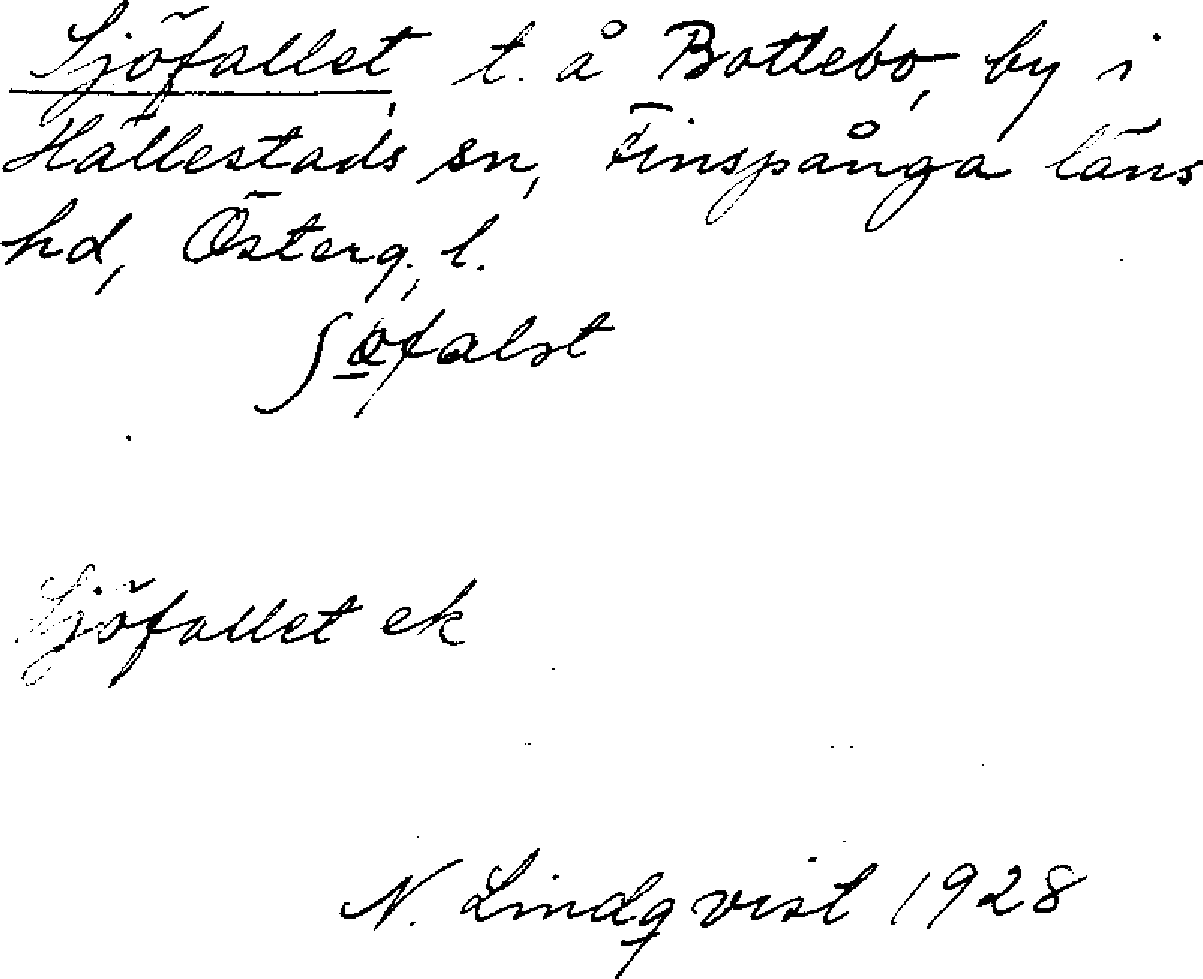 Sjöfallet, t. å Bottebo, by i
Hällestads sn, Finspånga läns
hd, Österg. l.
Sjöfallet ek
N. Lindqvist 1928